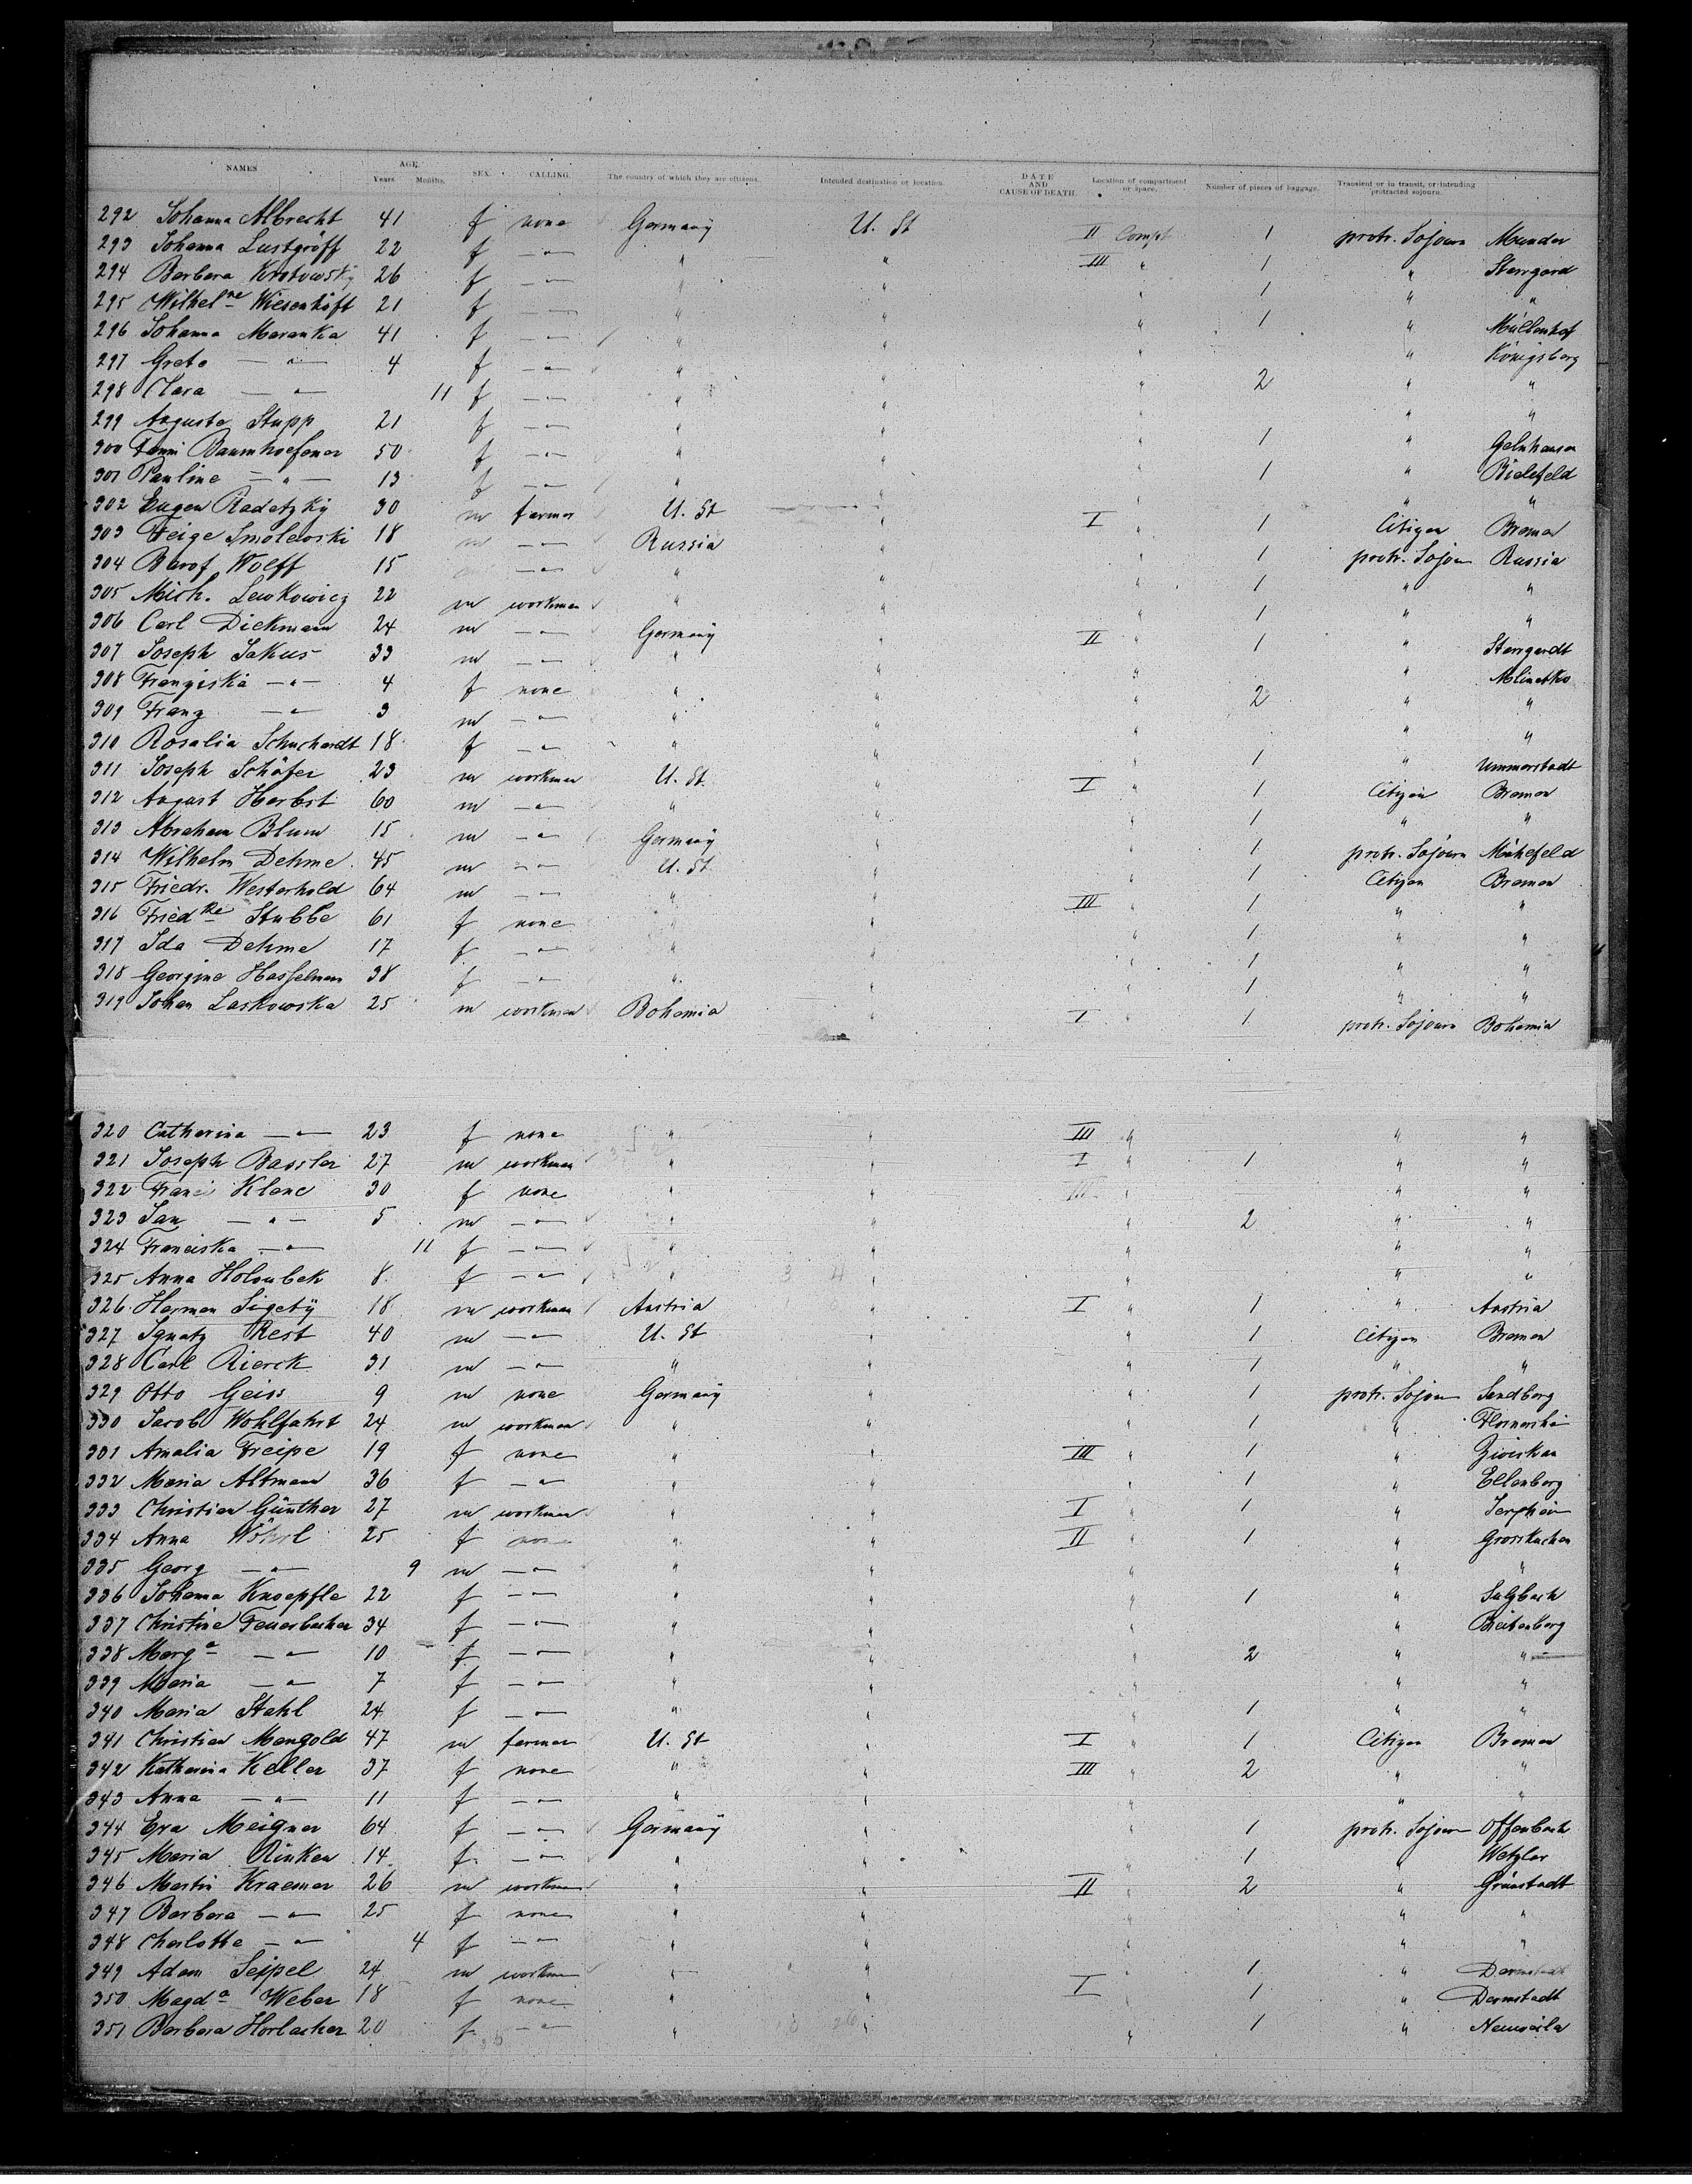 NAMES AGE. Years. Months. SEX. CALLING. The country of which they are citizens. Intended destination or location. DATE AND CAUSE OF DEATH. Location of compartment or space. Number of pieces of baggage. Transient or in transit, or intending protracted sojourn.
292 Johanna Albrecht 41 f none Germany U. St II Compt 1 protr. Sojourn Munder
293 Johanna Lustgröff 22 f — " — " " III " 1 " Stargard
294 Barbara Krotowsky 26 f — " — " " " 1 " "
295 Wilhelne Wiesenhöft 21 f — " — " " " 1 " Müllenhof
296 Johanna Maranka 41 f — " — " " " " Königsberg
297 Grete — " — 4 f — " — " " " 2 " "
298 Clara — " — 11 f — " — " " " " "
299 Auguste Stupp 21 f — " — " " " 1 " Gelnhausen
300 Fanni Baumhoefener 50 f — " — " " " 1 " Bielefeld
301 Pauline — " — 13 f — " — " " " "
302 Eugen Radetzky 30 m farmer U. St " I " 1 Citizen Bremen
303 Feige Smolenski 18 m — " — Russia " " 1 protr. Sojour Russia
304 Wolff 15 — " — " " " 1 " "
305 Mich. Lewkowicz 22 m workman " " " 1 " "
306 Carl Dickmann 24 m — " — Germany " II " 1 " Stargardt
307 Joseph Jakus 33 m — " — " " " " Mlinetko
308 Franziska — " — 4 f none " " " 2 " "
309 Franz — " — 3 m — " — " " " " "
310 Rosalia Schuchardt 18 f — " — " " " 1 " Ummerstadt
311 Joseph Schäfer 23 m workman U. St. " I " 1 Citizen Bremen
312 August Herbst 60 m — " — " " " 1 " "
313 Abraham Blum 15 m — " — Germany " " 1 protr. Sojourn
314 Wilhelm Dehme 45 m — " — U. St " " 1 Citizen Bremen
315 Friedr. Westerhold 64 m — " — " " III " 1 " "
316 Friedke Stubbe 61 f none " " " 1 " "
317 Ida Dehme 17 f — " — " " " 1 " "
318 Georgine Hasselmann 38 f — " — " " " 1 " "
319 Johan Laskowska 25 m workman Bohemia " I " 1 protr. Sojourn Bohemia
320 Catherina — " — 23 f none " " III " " "
321 Joseph Bassler 27 m workman " " I " 1 " "
322 Klane 30 f none " " III " " "
323 Jan — " — 5 m — " — " " " 2 " "
324 Franciska — " — 11 f — " — " " " " "
325 Anna Holoubek 8 f — " — " " " " "
326 Herman Sigety 18 m workman Austria " I " 1 " Austria
327 Ignatz Rest 40 m — " — U. St " " 1 Citizen Bremen
328 Carl Rierck 31 m — " — " " " 1 " "
329 Otto Geiss 9 m none Germany " " 1 protr. Sojour Sandberg
330 Jacob Wohlfahrt 24 m workman " " " 1 "
331 Amalia Freipe 19 f none " " III " 1 "
332 Maria Altmann 36 f — " — " " " 1 " Ellenberg
333 Christian Günther 27 m workman " " I " 1 "
334 Anna Wöhrl 25 f none " " II " 1 " Grosskuchen
335 Georg — " — 9 m — " — " " " " "
336 Johanna Knoepfle 22 f — " — " " " 1 " Sulzbach
337 Christine Feuerbacher 34 f — " — " " " " Breitenberg
338 Marga — " — 10 f — " — " " " 2 " "
339 Maria — " — 7 f — " — " " " " "
340 Maria Stahl 24 f — " — " " " 1 " "
341 Christian Mangold 47 m farmer U. St " I " 1 Citizen Bremen
342 Katharina Keller 37 f none " " III " 2 " "
343 Anna — " — 11 f — " — " " " " "
344 Eva Meigner 64 f — " — Germany " " 1 protr. Sojourn Offenbach
345 Maria Rinken 14 f — " — " " " 1 " Wetzlar
346 Martin Kraemer 26 m workman " " II " 2 " Grünstadt
347 Barbara — " — 25 f none " " " " "
348 Charlotte — " — 4 f — " — " " " " "
349 Adam Seippel 24 m workman " " " 1 " Darmstadt
350 Magda Weber 18 f none " " I " 1 " Darmstadt
351 Barbara Horlacher 20 f — " — " " " 1 "